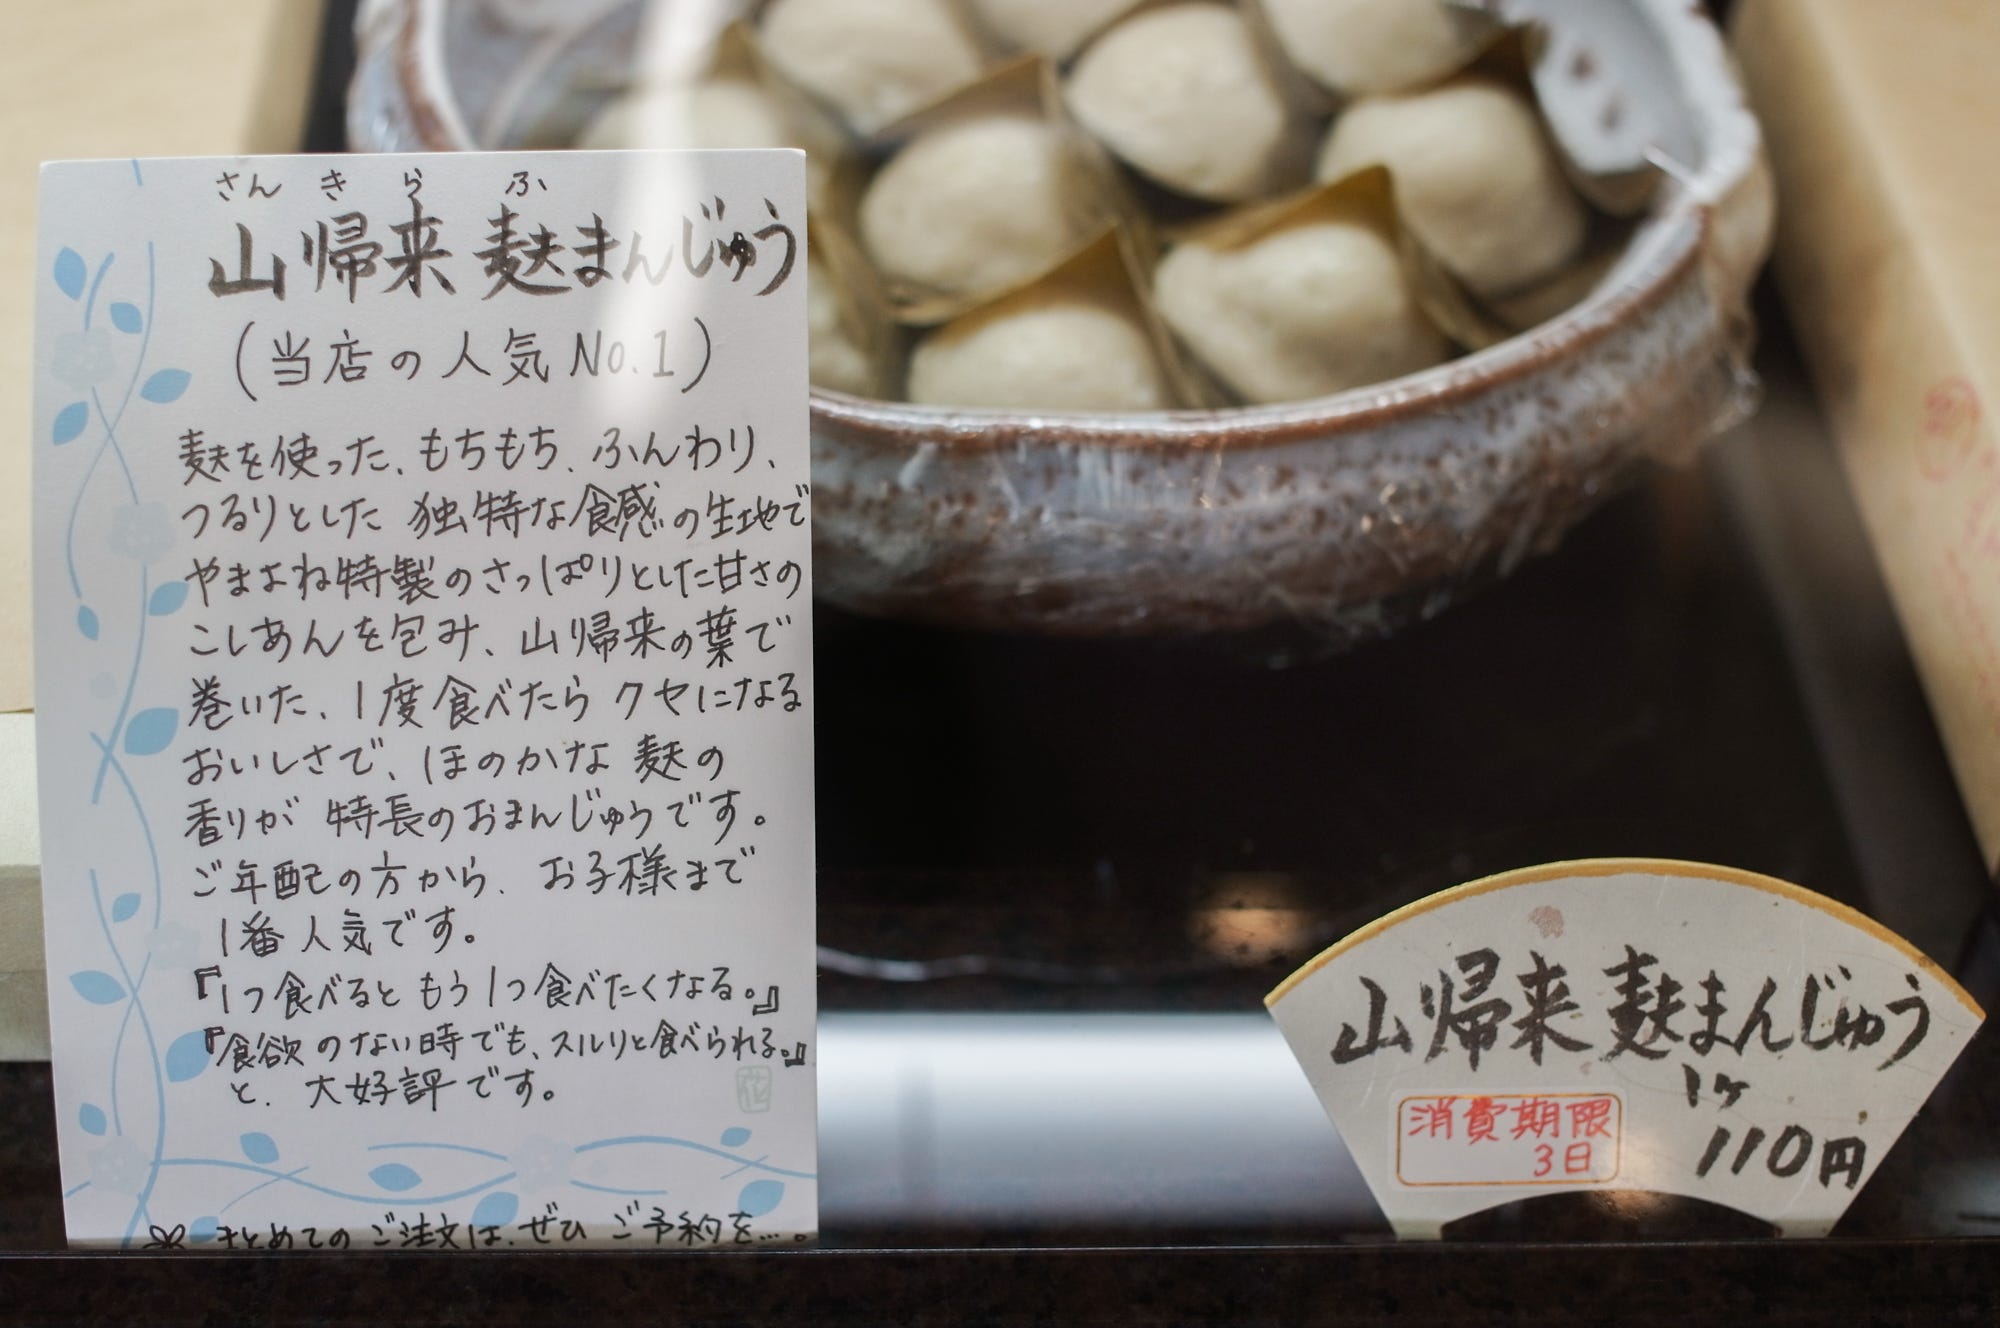 さんきらふ
山帰来 麸まんじゅう
(当店の人気No.1)
麸を使った、もちもち、ふんわり、
つるりとした 独特な食感の生地で
やまよね特製のさっぱりとした甘さの
こしあんを包み、山帰来の葉で
巻いた、1度食べたら クセになる
おいしさで、ほのかな 麸の
香りが 特長のおまんじゅうです。
ご年配の方から、お子様まで
1番人気です。
『1つ食べると もう1つ食べたくなる。』
『食欲のない時でも、スルリと食べられる。』
と、大好評です。
花
まとめての ご注文は、ぜひ ご予約を…。
山帰来 麸まんじゅう
1ケ
110円
消費期限
3日